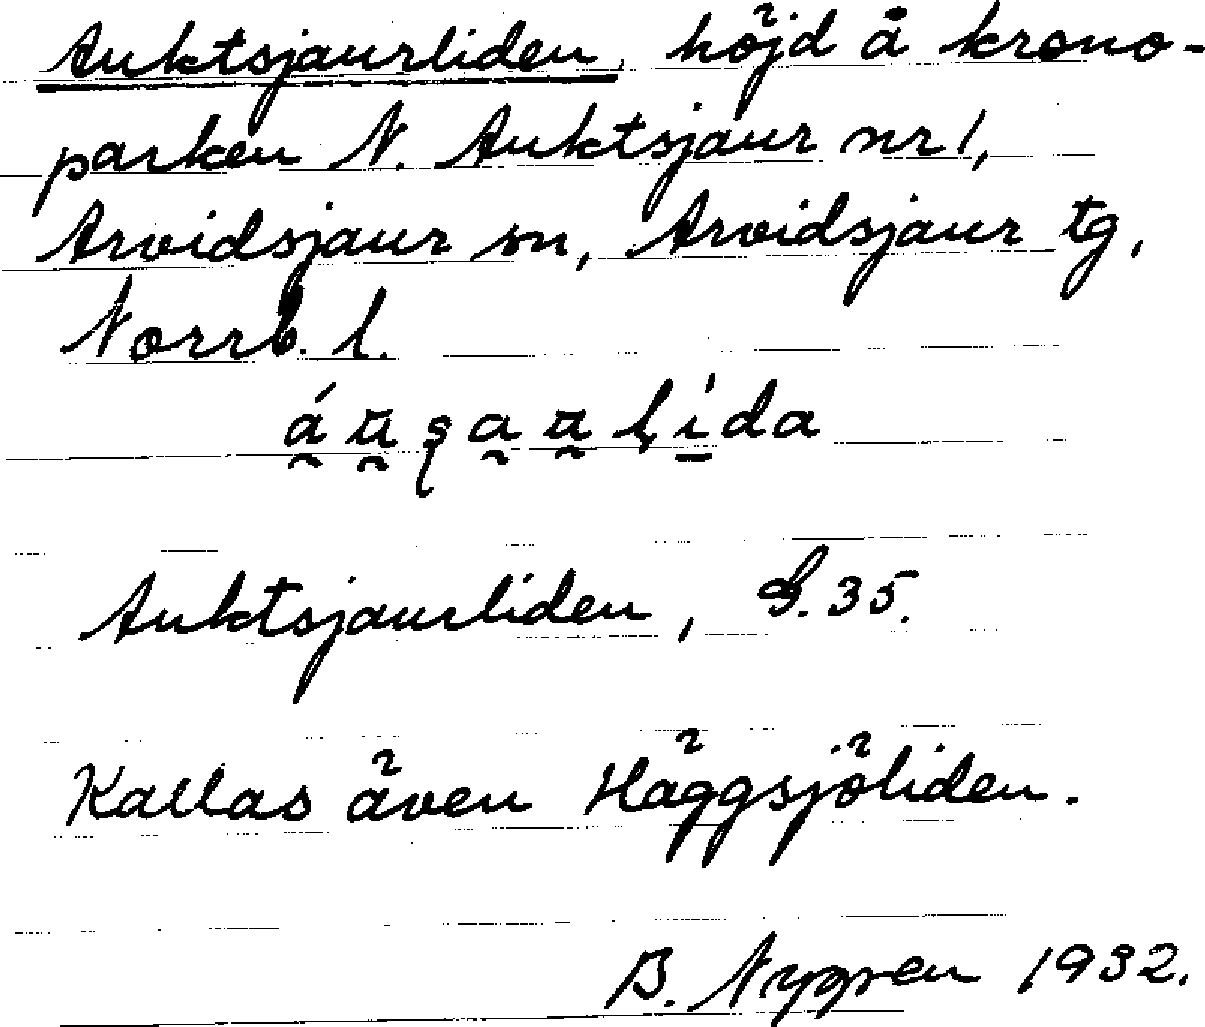 Auktsjaurliden, höjd å krono-
parken N. Auktsjaur nr 1,
Arvidsjaur sn, Arvidsjaur tg,
Norrb. l.
Auktsjaurliden, G. 35.
Kallas även Häggsjöliden.
B. Nygren 1932.